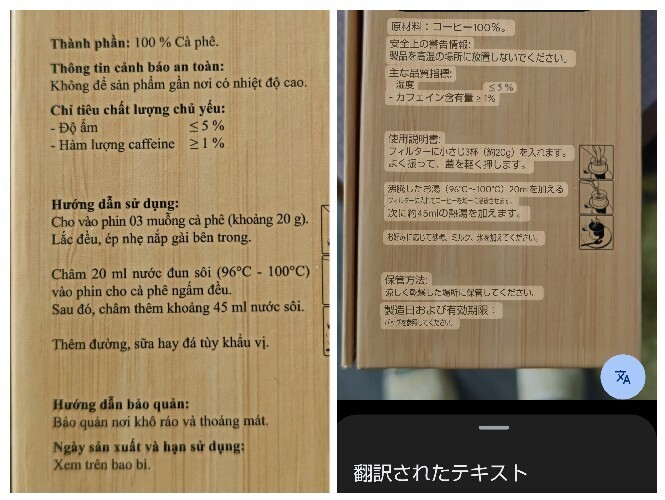 Thành phần: 100 % Cà phê.
Thông tin cảnh báo an toàn:
Không để sản phẩm gần nơi có nhiệt độ cao.
Chỉ tiêu chất lượng chủ yếu:
- Độ ẩm ≤ 5 %
- Hàm lượng caffeine ≥ 1 %
Hướng dẫn sử dụng:
Cho vào phin 03 muỗng cà phê (khoảng 20 g).
Lắc đều, ép nhẹ nắp gài bên trong.
Châm 20 ml nước đun sôi (96°C - 100°C)
vào phin cho cà phê ngấm đều.
Sau đó, châm thêm khoảng 45 ml nước sôi.
Thêm đường, sữa hay đá tùy khẩu vị.
Hướng dẫn bảo quản:
Bảo quản nơi khô ráo và thoáng mát.
Ngày sản xuất và hạn sử dụng:
Xem trên bao bì.
原材料：コーヒー100%。
安全上の警告情報:
製品を高温の場所に放置しないでください。
主な品質指標:
湿度 ≤ 5 %
- カフェイン含有量 ≥ 1%
使用説明書:
フィルターに小さじ3杯（約20g）を入れます。
よく振って、蓋を軽く押します。
沸騰したお湯（96°C～100°C）20mlを加える
次に約45mlの熱湯を加えます。
お好みに応じて砂糖、ミルク、氷を加えてください。
保管方法:
涼しく乾燥した場所に保管してください。
製造日および有効期限：
バッグを参照してください。
翻訳されたテキスト